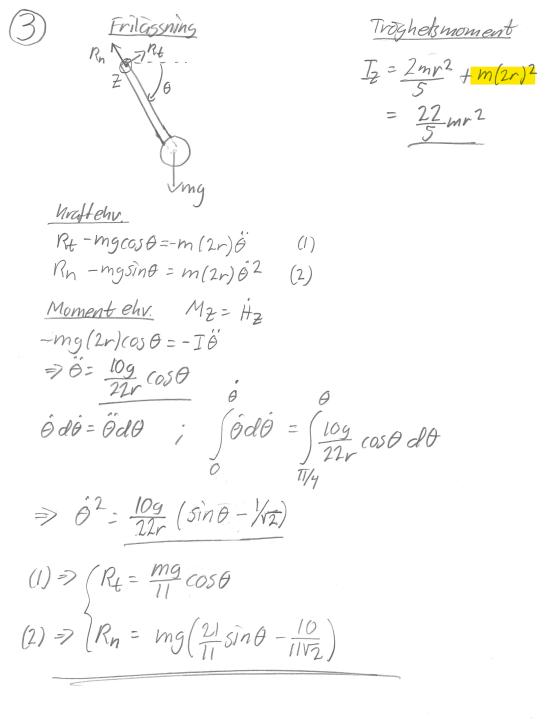 3
Frilässning
Tröghetsmoment
Rn Rt
z θ
mg
I_z = 2mr²/5 + m(2r)²
= 22/5 mr²
Kraftekv.
Rt - mgcosθ = -m(2r)θ̈ (1)
Rn - mgsinθ = m(2r)θ̇² (2)
Momentekv. M_z = Ḣ_z
-mg(2r)cosθ = -Iθ̈
⇒ θ̈ = 10g/22r cosθ
θ̇dθ̇ = θ̈dθ ; ∫₀^θ̇ θ̇dθ̇ = ∫_{π/4}^θ 10g/22r cosθ dθ
⇒ θ̇² = 10g/22r (sinθ - 1/√2)
(1) ⇒ { Rt = mg/11 cosθ
(2) ⇒ { Rn = mg(21/11 sinθ - 10/11√2)